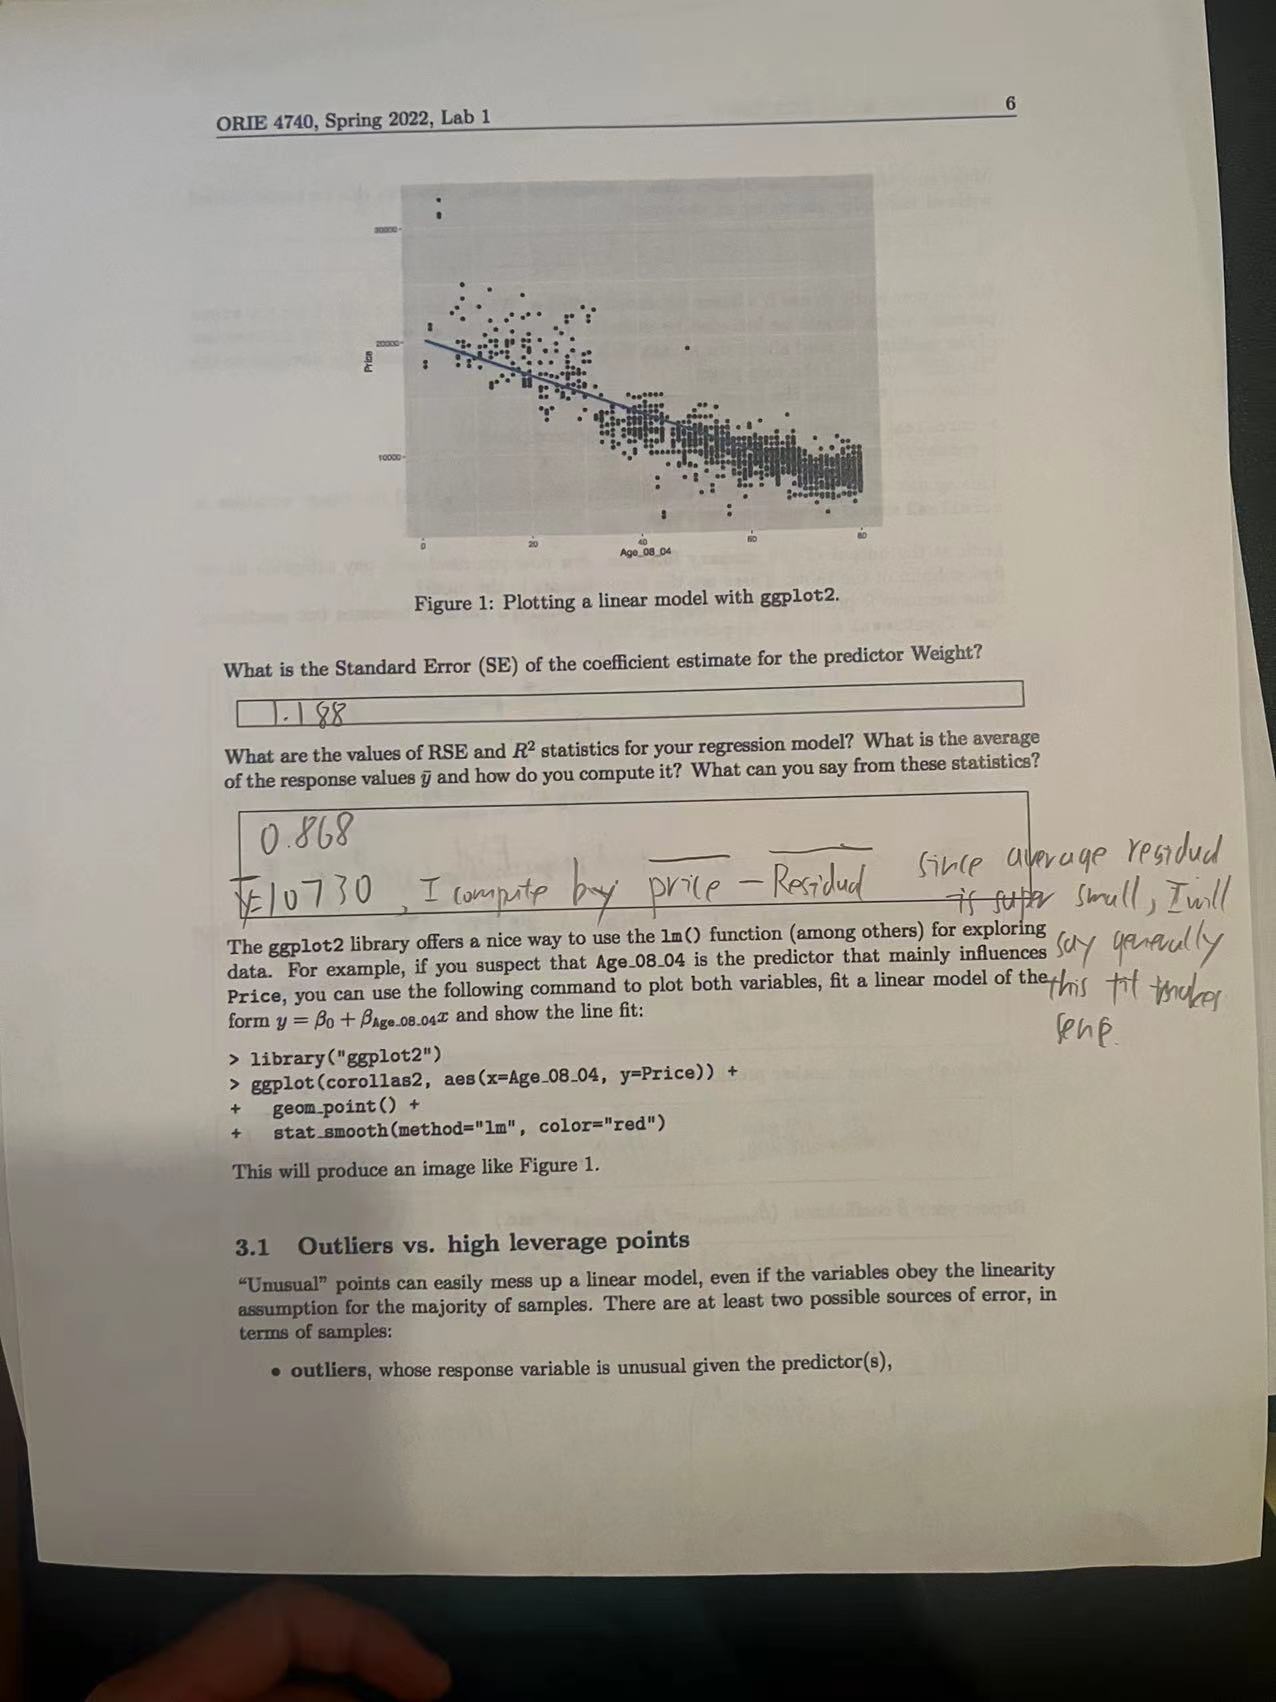 ORIE 4740, Spring 2022, Lab 1
6
30000
20000
10000
Price
0
20
40
60
80
Age_08_04
Figure 1: Plotting a linear model with ggplot2.
What is the Standard Error (SE) of the coefficient estimate for the predictor Weight?
1.188
What are the values of RSE and R² statistics for your regression model? What is the average
of the response values ȳ and how do you compute it? What can you say from these statistics?
0.868
Y̅=10730, I compute by price - Residual since average residual
is super small, I will
say generally
this fit makes
sense.
The ggplot2 library offers a nice way to use the lm() function (among others) for exploring
data. For example, if you suspect that Age_08_04 is the predictor that mainly influences
Price, you can use the following command to plot both variables, fit a linear model of the
form y = β₀ + β_Age_08_04 x and show the line fit:
> library("ggplot2")
> ggplot(corollas2, aes(x=Age_08_04, y=Price)) +
+ geom_point() +
+ stat_smooth(method="lm", color="red")
This will produce an image like Figure 1.
3.1 Outliers vs. high leverage points
“Unusual” points can easily mess up a linear model, even if the variables obey the linearity
assumption for the majority of samples. There are at least two possible sources of error, in
terms of samples:
• outliers, whose response variable is unusual given the predictor(s),